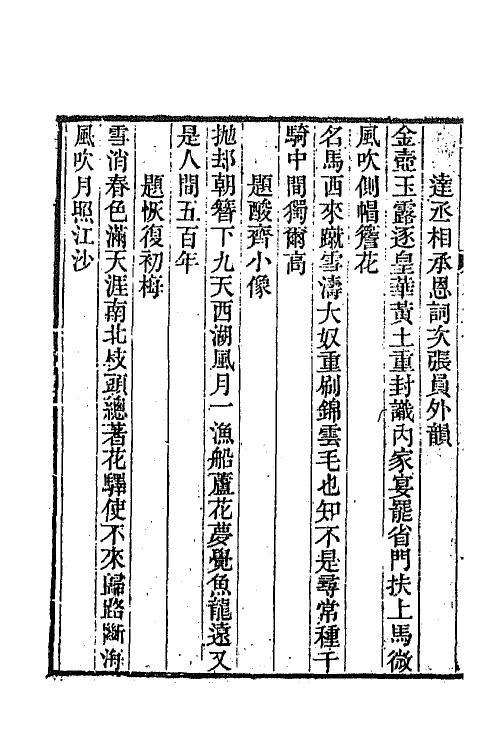 達丞相承恩詞次張員外韻
金壺玉露逐皇華黃土重封識內家宴罷省門扶上馬微
風吹側帽簷花
名馬西來蹴雪濤大奴重刷錦雲毛也知不是尋常種千
騎中間獨爾高
題酸齊小像
拋却朝簪下九天西湖風月一漁船蘆花夢覺魚龍遠又
是人間五百年
題恢復初梅
雪消春色滿天涯南北枝頭總著花驛使不來歸路斷海
風吹月照江沙